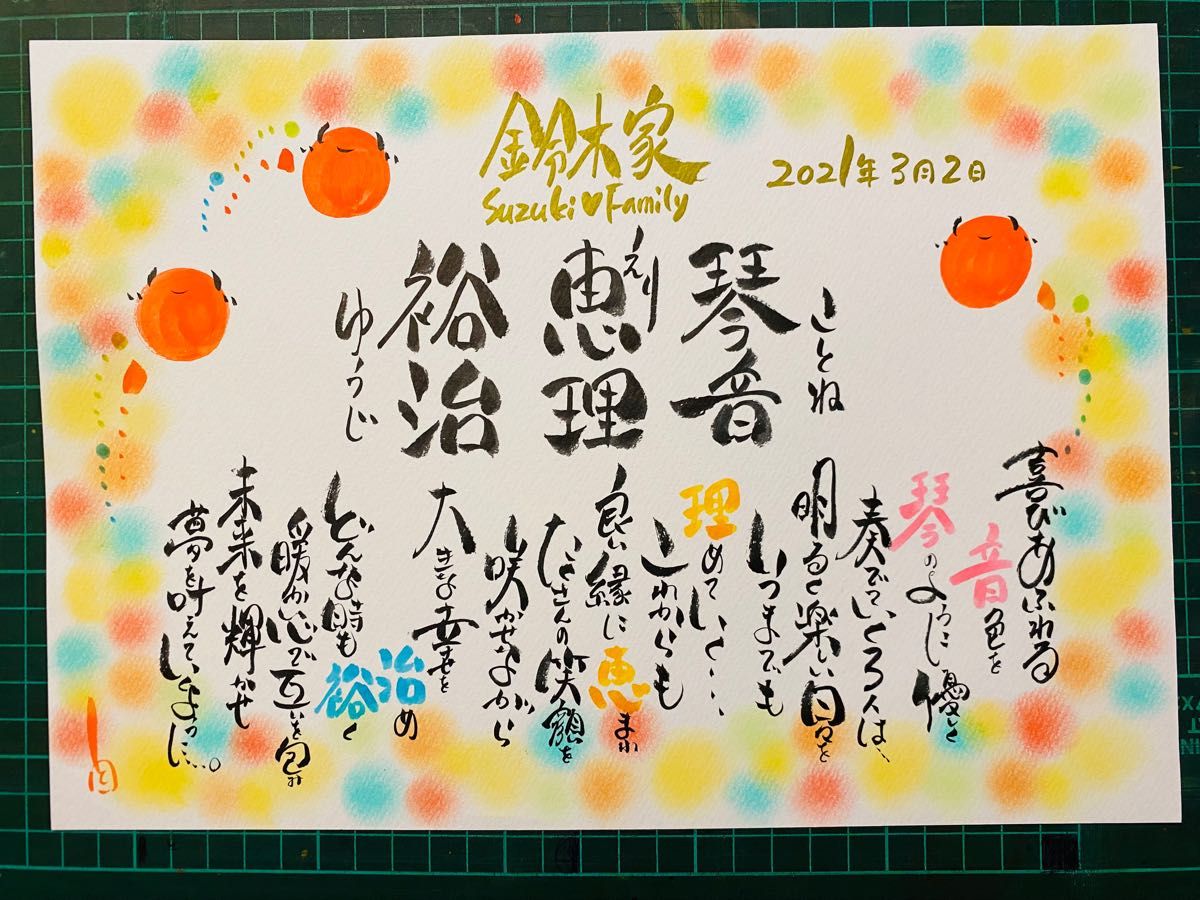 鈴木家
Suzuki♥Family
2021年3月2日
琴音
ことね
恵理
えり
裕治
ゆうじ
喜びあふれる
音色を
琴のように優しく
奏でていく3人は、
明るく楽しい日々を
いつまでも
理めていく・・・
これからも
良い縁に恵まれ
たくさんの笑顔を
咲かせながら
大きな幸せを
治め
どんな時も裕く
暖かい心で互いを包み
未来を輝かせ
夢を叶えてい ように…。